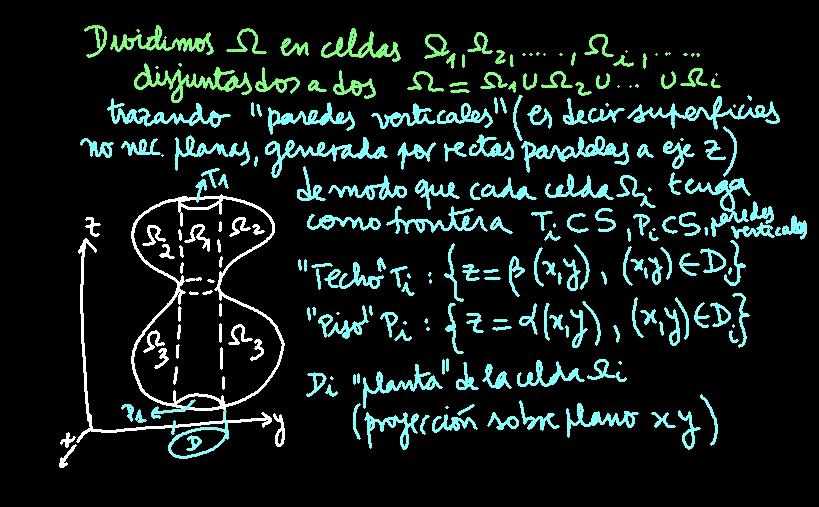 Dividimos Ω en celdas Ω1, Ω2, ....., Ωi, .. ...
disjuntas dos a dos Ω = Ω1 ∪ Ω2 ∪ ... ∪ Ωi
trazando "paredes verticales" (es decir superficies
no nec. planas, generada por rectas paralelas a eje z)
de modo que cada celda Ωi tenga
como frontera Ti ⊂ S, Pi ⊂ S, paredes verticales
"Techo" Ti : {z = β(x,y), (x,y) ∈ Di}
"Piso" Pi : {z = α(x,y), (x,y) ∈ Di}
Di "planta" de la celda Ωi
(proyección sobre plano xy)
T1
z
Ω2 Ω1 Ω2
Ω3 Ω3
P1
x
D
y